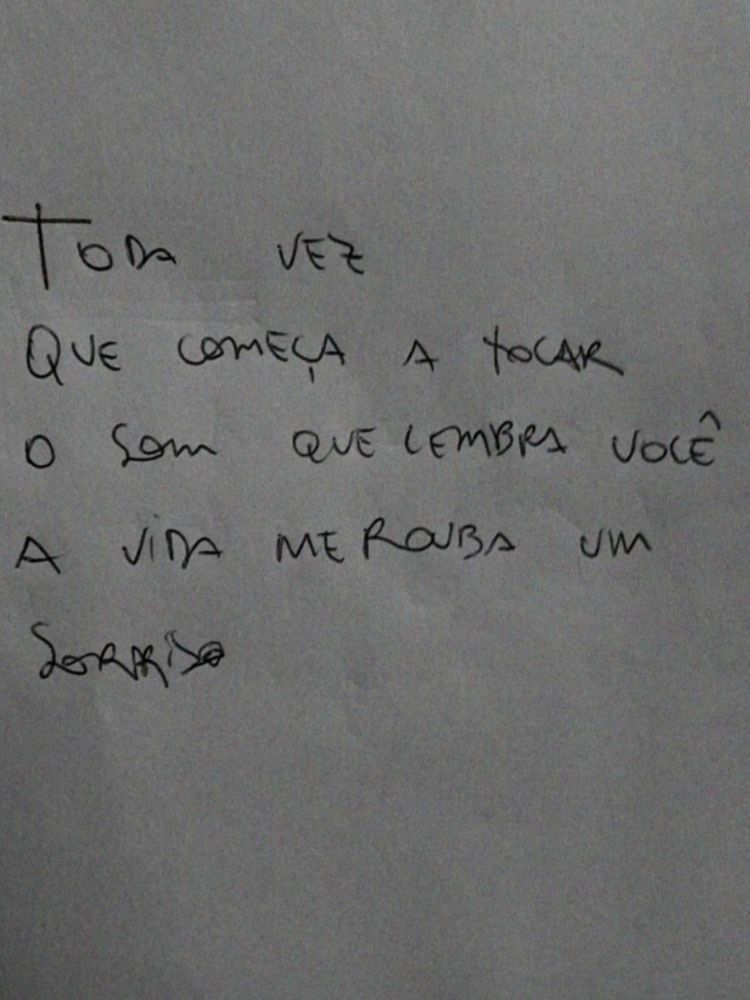 TODA VEZ
QUE COMEÇA A TOCAR
O SOM QUE LEMBRA VOCÊ
A VIDA ME ROUBA UM
SORRISO